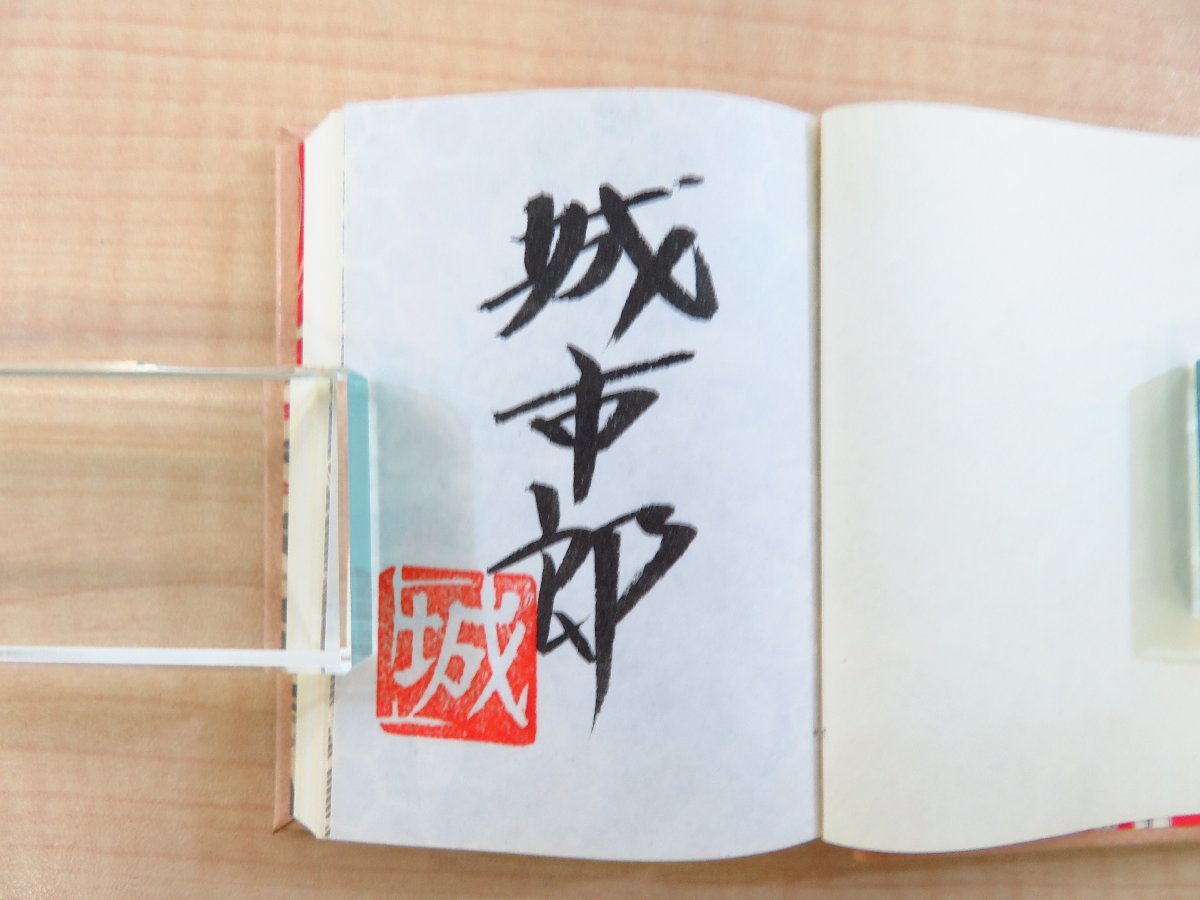 城市郎
城